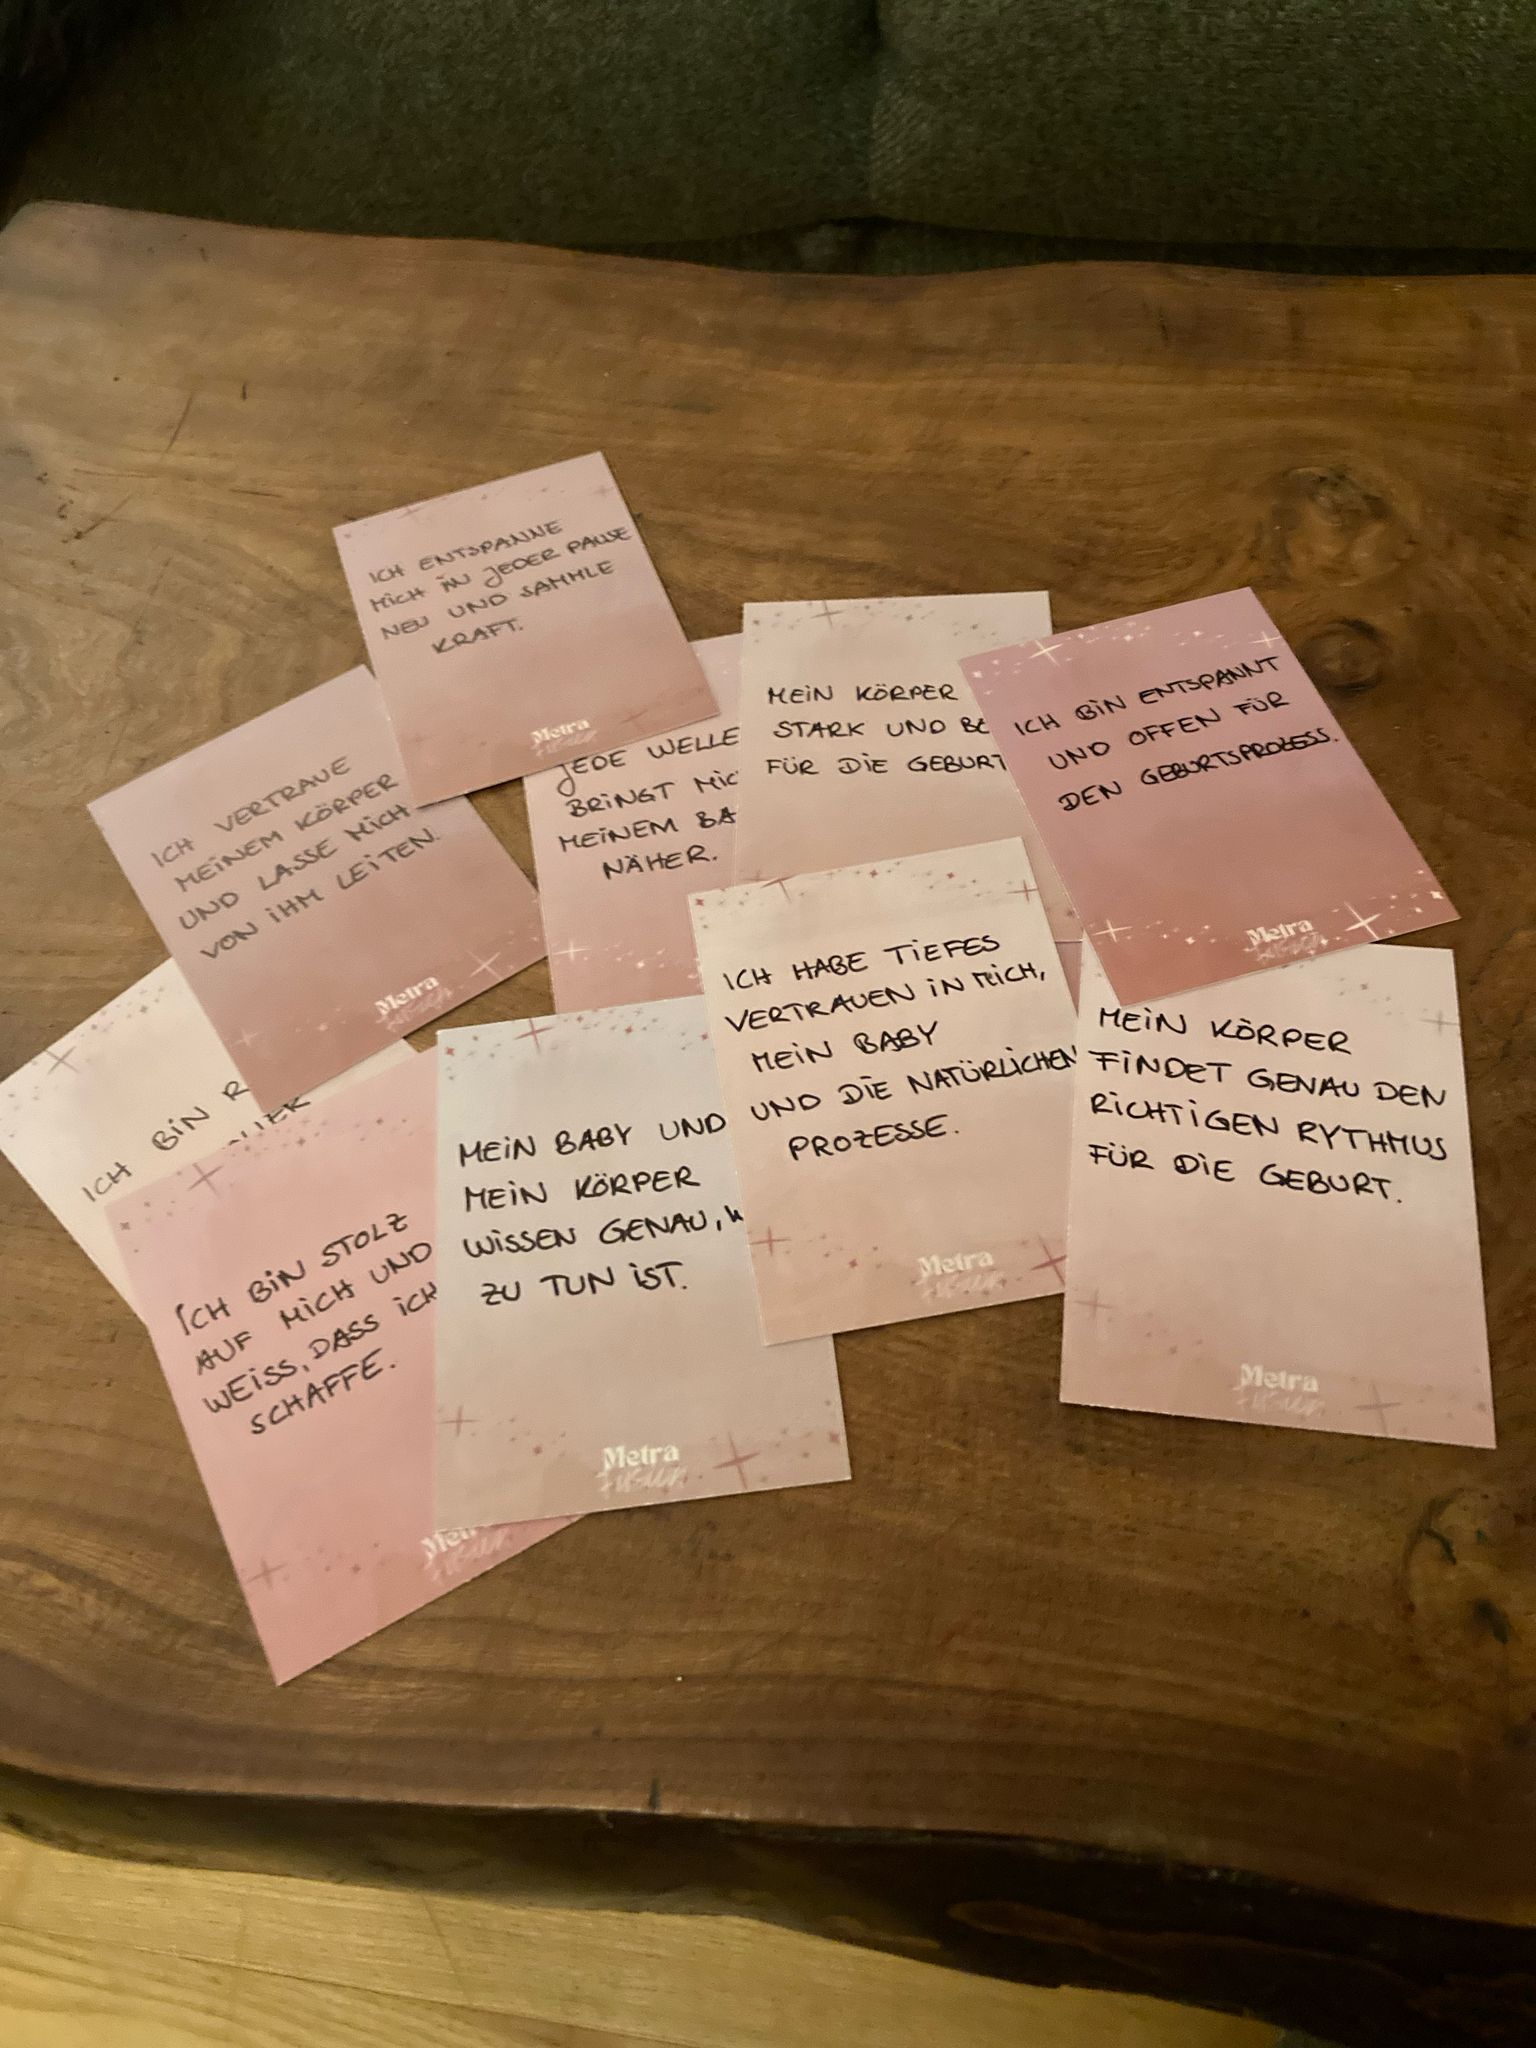 ICH ENTSPANNE
MICH IN JEDER PAUSE
NEU UND SAMMLE
KRAFT.
Metra
ICH VERTRAUE
MEINEM KÖRPER
UND LASSE MICH
VON IHM LEITEN.
Metra
JEDE WELLE
BRINGT
MEINEM
NÄHER.
MEIN KÖRPER
STARK UND
FÜR DIE GEBURT
ICH BIN ENTSPANNT
UND OFFEN FÜR
DEN GEBURTSPROZESS.
Metra
ICH BIN
ICH BIN STOLZ
AUF MICH UND
WEISS, DASS ICH
SCHAFFE.
MEIN BABY UND
MEIN KÖRPER
WISSEN GENAU,
ZU TUN IST.
Metra
ICH HABE TIEFES
VERTRAUEN IN MICH,
MEIN BABY
UND DIE NATÜRLICHEN
PROZESSE.
Metra
MEIN KÖRPER
FINDET GENAU DEN
RICHTIGEN RYTHMUS
FÜR DIE GEBURT.
Metra